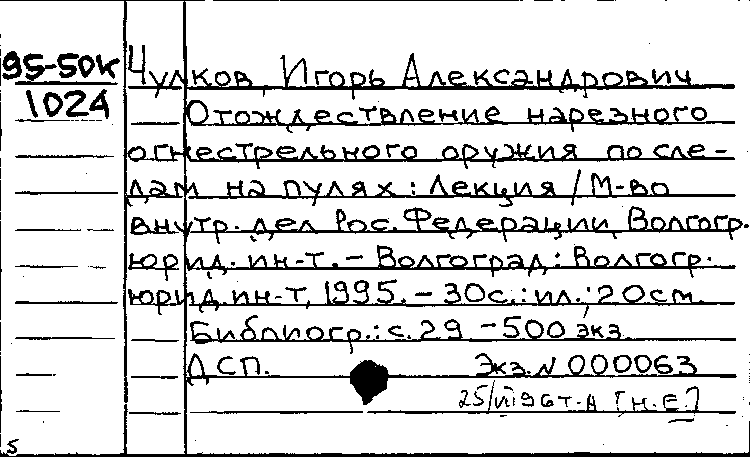 95-50К
1024
Чулков, Игорь Александрович
Отождествление нарезного
огнестрельного оружия по сле-
дам на пулях: Лекция / М-во
внутр. дел Рос. Федерации, Волгогр.
юрид. ин-т. – Волгоград: Волгогр.
юрид. ин-т, 1995. – 30с.: ил.; 20 см.
Библиогр.: с. 29 – 500 экз.
ДСП. Экз. N 000063
25/VI 96 т-А [Н.Е.]
5